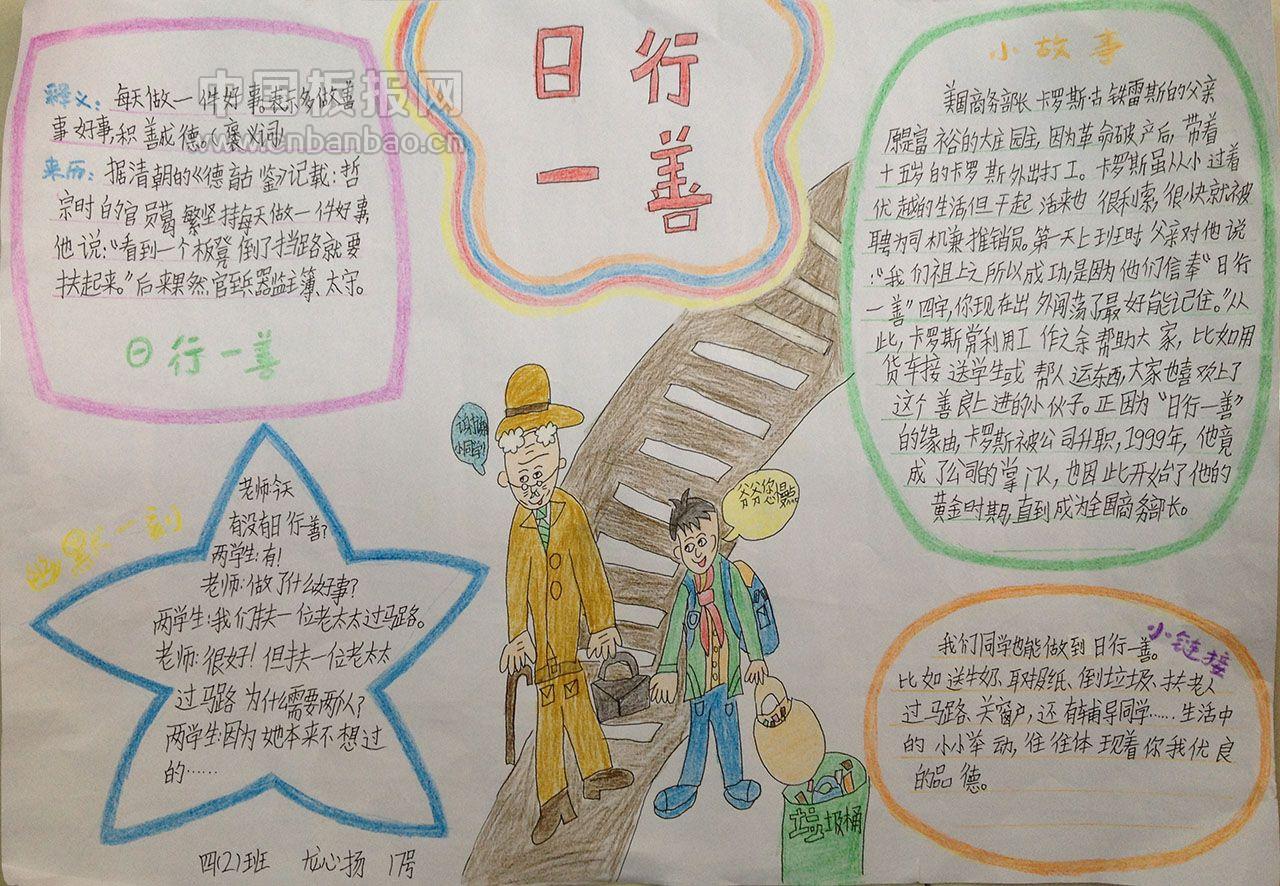 日行
一善
释义：每天做一件好事。表示多做善
事好事,积善成德。(褒义词)
来历：据清朝的《德育古鉴》记载：哲
宗时的官员葛繁坚持每天做一件好事,
他说:“看到一个板凳倒了挡路就要
扶起来。”后来果然官至兵器监主簿、太守。
日行一善
中国板报网
www.cnbanbao.cn
小故事
美国商务部长卡罗斯·古铁雷斯的父亲
原是富裕的大庄园主,因为革命破产后,带着
十五岁的卡罗斯外出打工。卡罗斯虽从小过着
优越的生活但干起活来也很利索,很快就被
聘为司机兼推销员。第一天上班时父亲对他说
:“我们祖上之所以成功是因为他们信奉“日行
一善”四字,你现在出外闯荡了最好能记住。”从
此,卡罗斯常利用工作之余帮助大家,比如用
货车接送学生或帮人运东西,大家也喜欢上了
这个善良上进的小伙子。正因为“日行一善”
的缘由,卡罗斯被公司升职,1999年,他竟
成了公司的掌门人,也因此开始了他的
黄金时期,直到成为全国商务部长。
幽默一刻
老师:今天
有没有日行一善?
两学生:有!
老师:做了什么好事?
两学生:我们扶一位老太太过马路。
老师:很好!但扶一位老太太
过马路为什么需要两人?
两学生:因为她本来不想过
的……
谢谢
小同学!
爷爷您慢点
垃圾桶
小链接
我们同学也能做到日行一善。
比如送牛奶、取报纸、倒垃圾、扶老人
过马路、关窗户,还有辅导同学……生活中
的小小举动,往往体现着你我优良
的品德。
四(2)班 龙心扬 17号